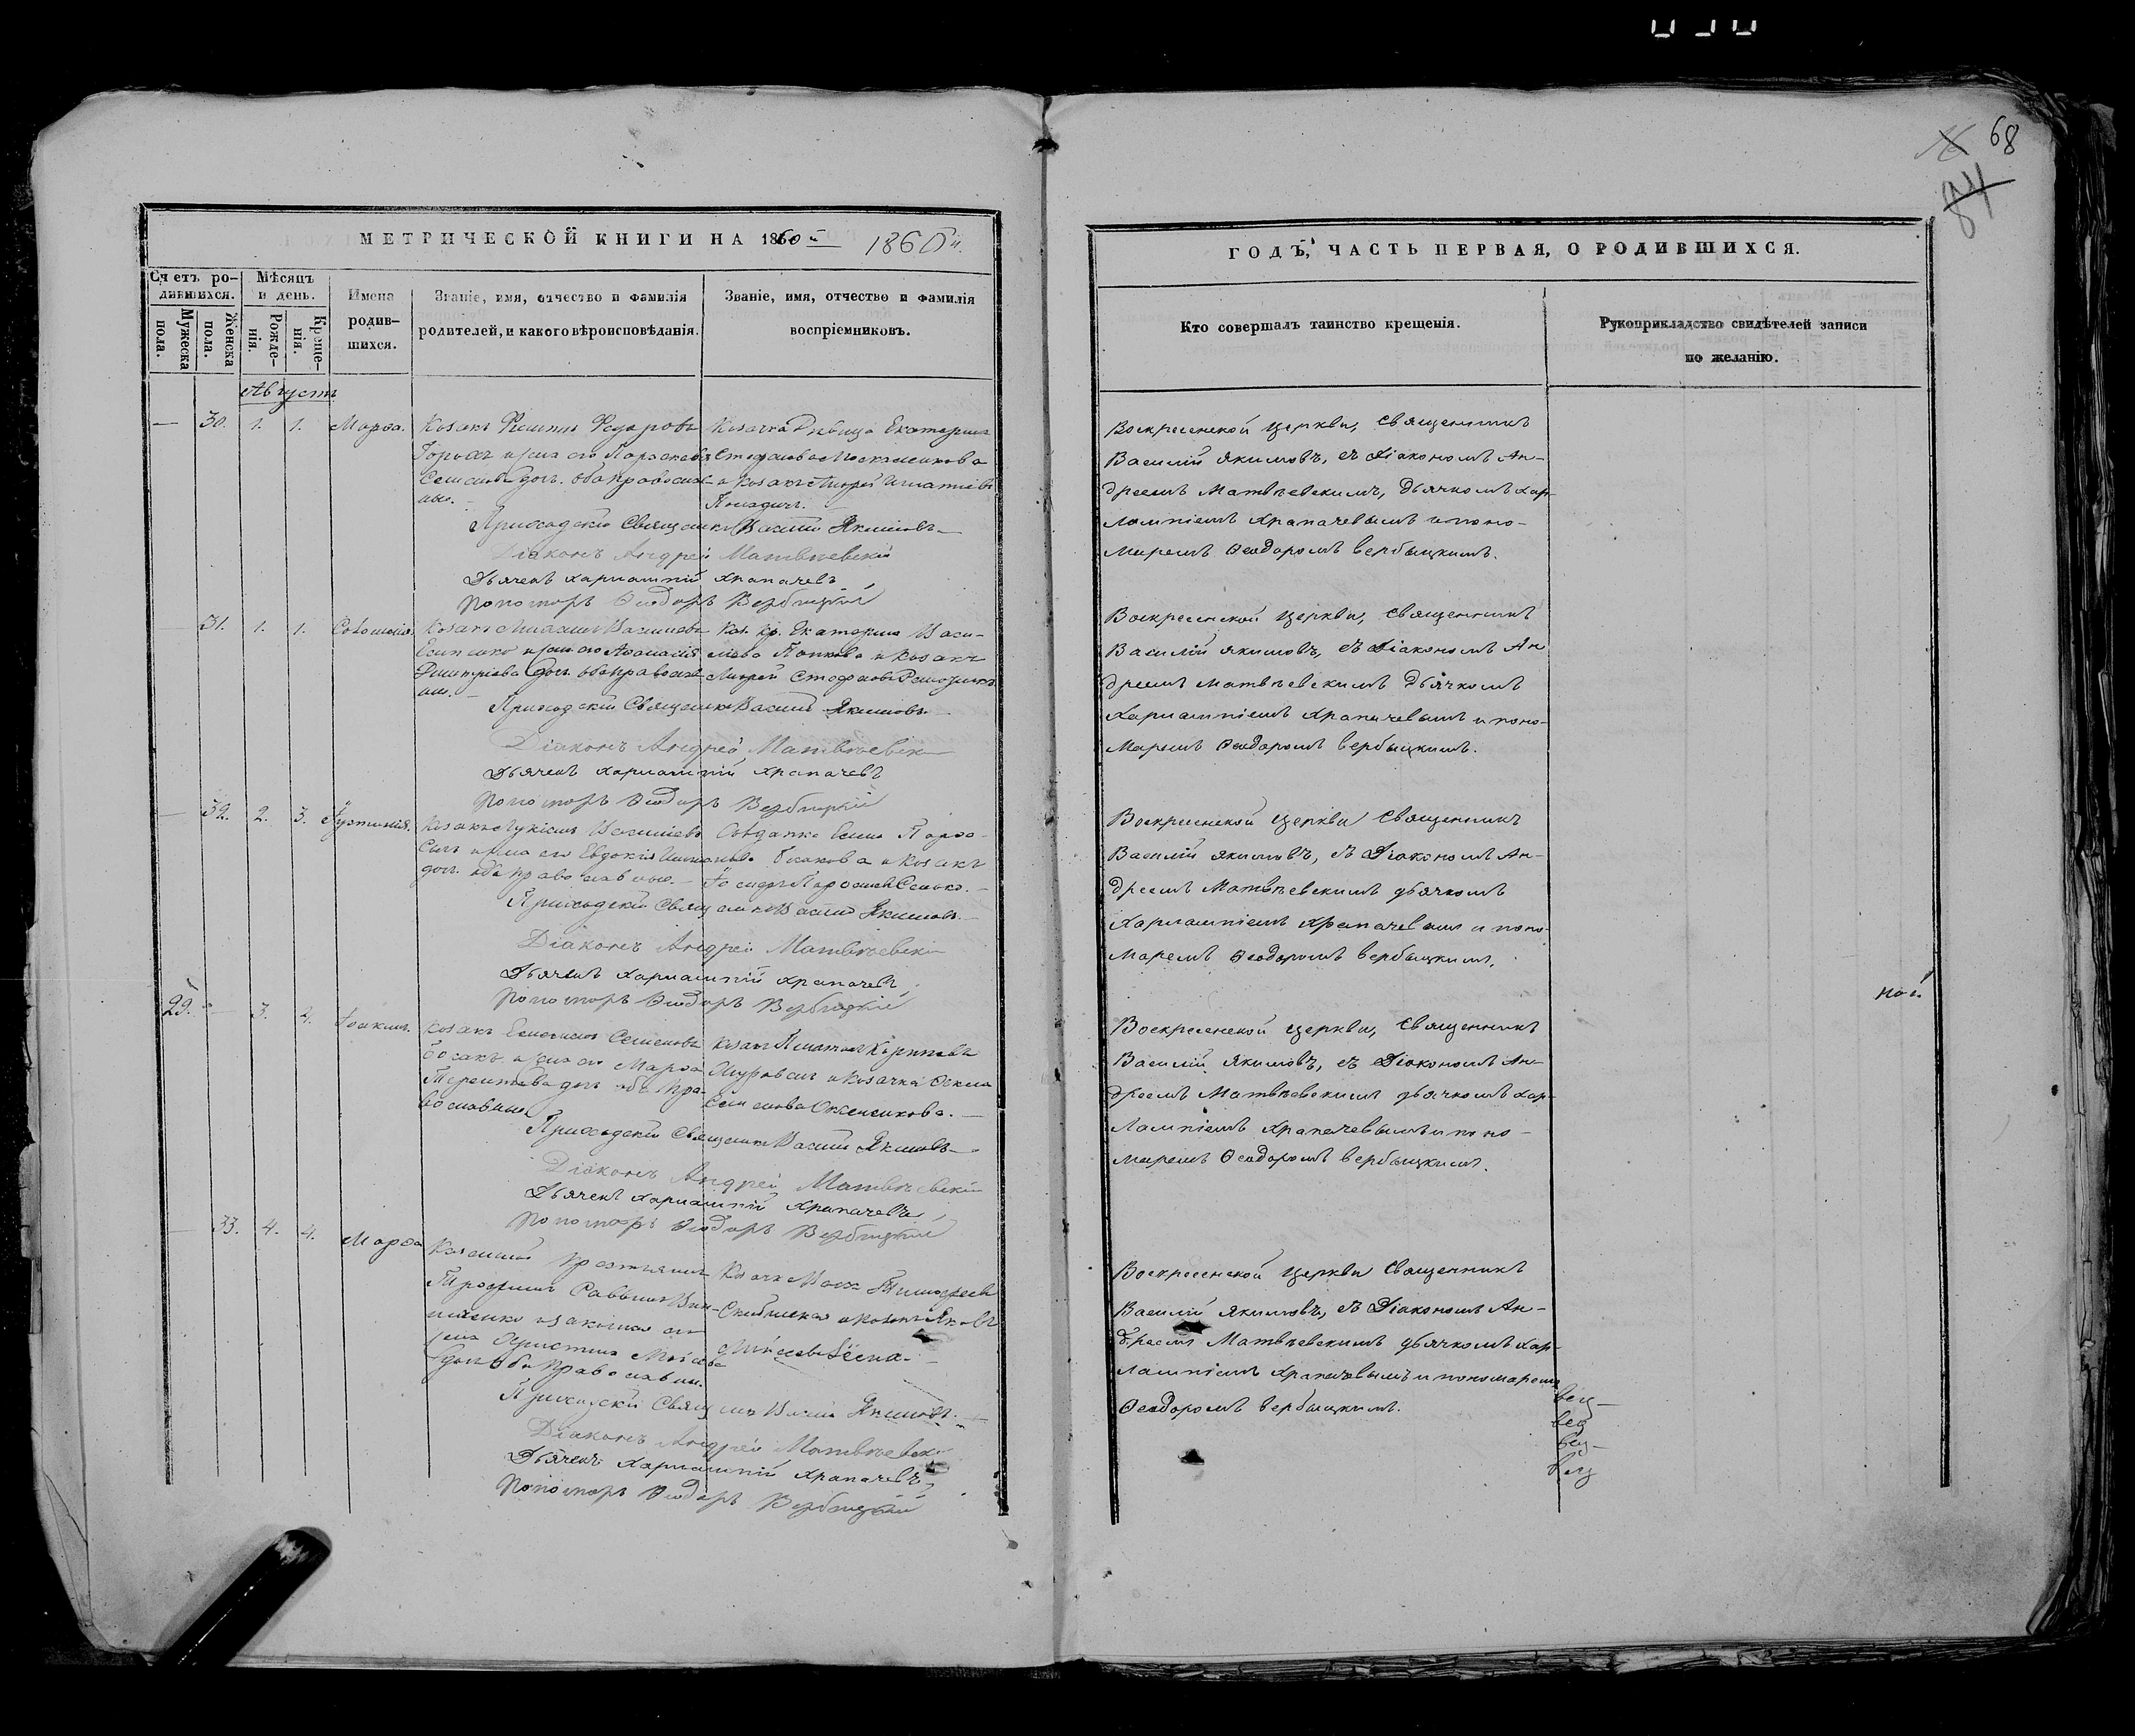 68
84
МЕТРИЧЕСКОЙ КНИГИ НА 1860й 1860й.
Счетъ родившихся.
Мѣсяцъ и день.
Мужеска пола.
Женска пола.
Рожденія.
Крещенія.
Имена родившихся.
Званіе, имя, отчество и фамилія родителей, и какого вѣроисповѣданія.
Званіе, имя, отчество и фамилія воспріемниковъ.
Августъ
— 30. 1. 1. Марѳа.
Козакъ Филипъ Федоровъ
Горохъ и жена его Параскева
обаправослав-
ные.
Козачка Дѣвица Екатерина
Стефанова
и козакъ Андрей Игнатіевъ
Приходскій Священникъ Василій Якимовъ
Діаконъ Андрей Матвѣевскій
Дьячекъ Харлампій Храпачевъ
Пономарь Ѳеодоръ Вербицкій
31. 1. 1. Соломонія.
Козакъ Василіевъ
и жена его Аѳанасія
Дмитріева доч. обаправослав-
ные.
Каз. кр. Екатерина Васи-
лева Попкова и козакъ
Андрей Стефановъ
Приходскій Священникъ Василій Якимовъ
Діаконъ Андрей Матвѣевскій
Дьячекъ Харлампій Храпачевъ
Пономарь Ѳеодоръ Вербицкій
— 32. 2. 3. Іустинія.
Козакъ Лукіанъ Василіевъ
и жена его Евдокія
доч. оба православные.
Солдатка Елена
и козакъ
Приходскій Священникъ Василій Якимовъ
Діаконъ Андрей Матвѣевскій
Дьячекъ Харлампій Храпачевъ
Пономарь Ѳеодоръ Вербицкій
29. — 3. 4. Іоакимъ.
Козакъ Семеновъ
и жена его Марѳа
Терентіева доч. оба пра-
вославные
Козакъ Платонъ
и козачка
Семенова
Приходскій Священникъ Василій Якимовъ
Діаконъ Андрей Матвѣевскій
Дьячекъ Харлампій Храпачевъ
Пономарь Ѳеодоръ Вербицкій
— 33. 4. 4. Марѳа
Казенный крестьянинъ
Трофимъ Саввинъ
и законная его
жена Христина
доч. оба православн.
Козачка Тимофеева
и козакъ Яковъ
Приходскій Священникъ Василій Якимовъ
Діаконъ Андрей Матвѣевскій
Дьячекъ Харлампій Храпачевъ
Пономарь Ѳеодоръ Вербицкій
ГОДЪ, ЧАСТЬ ПЕРВАЯ, О РОДИВШИХСЯ.
Кто совершалъ таинство крещенія.
Рукоприкладство свидѣтелей записи
по желанію.
Воскресенской церкви, Священникъ
Василій Якимовъ, съ Діакономъ Ан-
дреемъ Матвѣевскимъ, Дьячкомъ Хар-
лампіемъ Храпачевымъ и поно-
маремъ Ѳеодоромъ Вербыцкимъ.
Воскресенской церкви, Священникъ
Василій Якимовъ, съ Діакономъ Ан
дреемъ Матвѣевскимъ Дьячкомъ
Харлампіемъ Храпачевымъ и поно-
маремъ Ѳеодоромъ Вербыцкимъ.
Воскресенской церкви Священникъ
Василій Якимовъ, съ Діакономъ Ан-
дреемъ Матвѣевскимъ дьячкомъ
Харлампіемъ Храпачевымъ и поно-
маремъ Ѳеодоромъ Вербыцкимъ.
ной
Воскресенской церкви, Священникъ
Василій Якимовъ, съ Діакономъ Ан-
дреемъ Матвѣевскимъ дьячкомъ Хар-
лампіемъ Храпачевымъ и поно-
маремъ Ѳеодоромъ Вербыцкимъ.
Воскресенской церкви Священникъ
Василій Якимовъ, съ Діакономъ Ан-
дреемъ Матвѣевскимъ дьячкомъ Хар-
лампіемъ Храпачевымъ и пономаремъ
Ѳеодоромъ Вербыцкимъ.